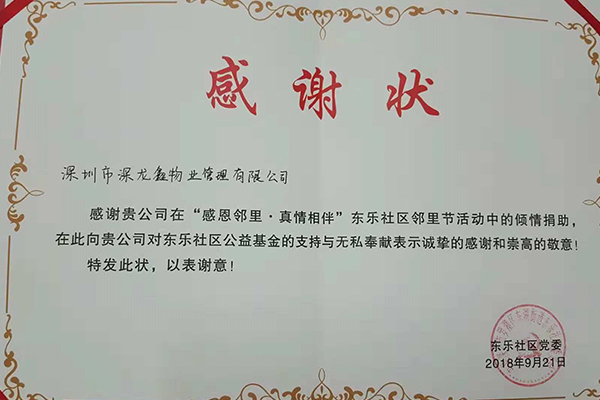 感谢状
深圳市深龙鑫物业管理有限公司
感谢贵公司在“感恩邻里·真情相伴”东乐社区邻里节活动中的倾情捐助，
在此向贵公司对东乐社区公益基金的支持与无私奉献表示诚挚的感谢和崇高的敬意！
特发此状，以表谢意！
东乐社区党委
2018年9月21日